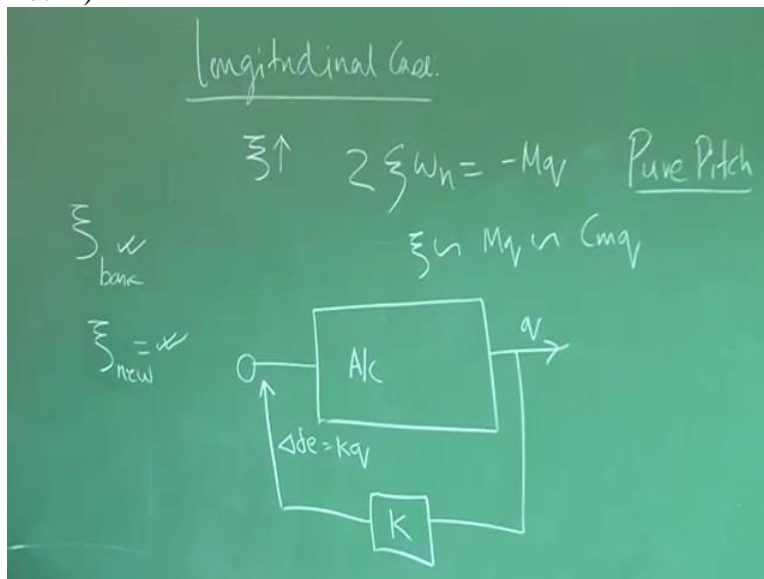 Longitudinal Case.
ξ↑ 2ξωn = -Mq Pure Pitch
ξ basic
ξ ∽ Mq ∽ Cmq
ξ new =
A/c
q
Δδe = Kq
K